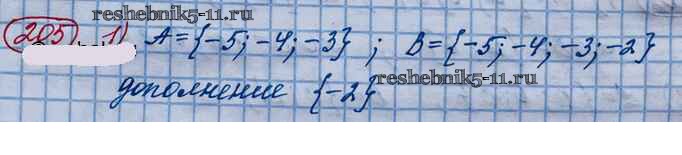 reshebnik5-11.ru
205 1) A={-5;-4;-3}; B={-5;-4;-3;-2}
дополнение {-2}
reshebnik5-11.ru